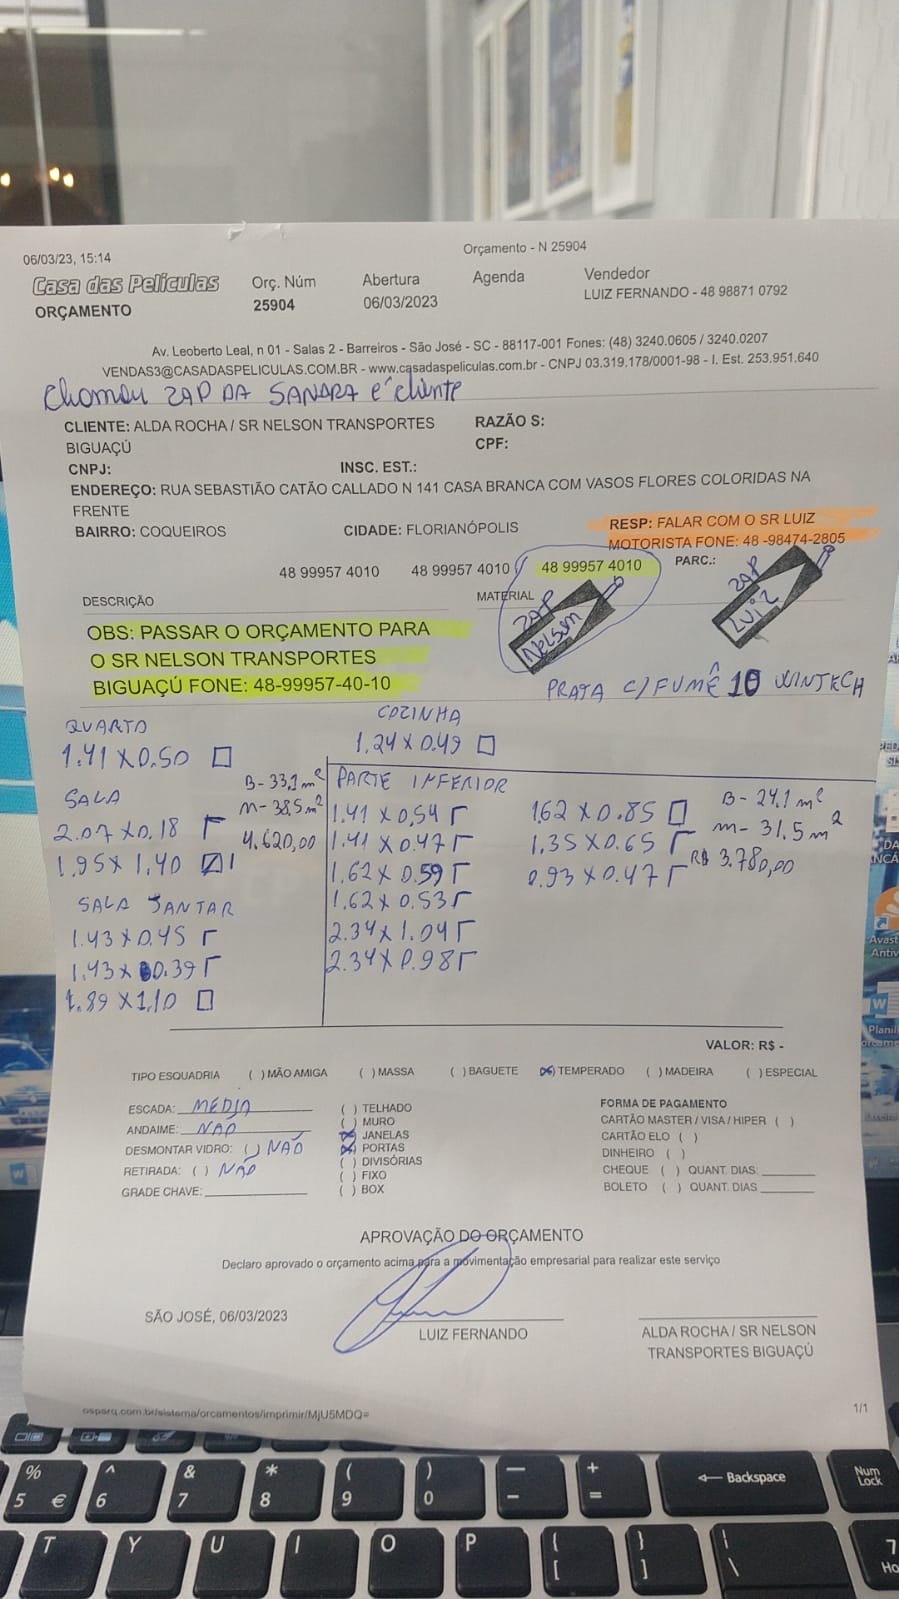 06/03/23, 15:14
Orçamento - N 25904
Casa das Películas
ORÇAMENTO
Orç. Núm
25904
Abertura
06/03/2023
Agenda
Vendedor
LUIZ FERNANDO - 48 98871 0792
Av. Leoberto Leal, n 01 - Salas 2 - Barreiros - São José - SC - 88117-001 Fones: (48) 3240.0605 / 3240.0207
VENDAS3@CASADASPELICULAS.COM.BR - www.casadaspeliculas.com.br - CNPJ 03.319.178/0001-98 - I. Est. 253.951.640
Chamou ZAP DA SANDRA é cliente
CLIENTE: ALDA ROCHA / SR NELSON TRANSPORTES
BIGUAÇÚ
RAZÃO S:
CPF:
CNPJ:
INSC. EST.:
ENDEREÇO: RUA SEBASTIÃO CATÃO CALLADO N 141 CASA BRANCA COM VASOS FLORES COLORIDAS NA
FRENTE
BAIRRO: COQUEIROS
CIDADE: FLORIANÓPOLIS
RESP: FALAR COM O SR LUIZ
MOTORISTA FONE: 48 -98474-2805
48 99957 4010
48 99957 4010
48 99957 4010
PARC.:
DESCRIÇÃO
MATERIAL
ZAP
NELSON
ZAP
LUIZ
OBS: PASSAR O ORÇAMENTO PARA
O SR NELSON TRANSPORTES
BIGUAÇÚ FONE: 48-99957-40-10
PRATA C/ FUMÊ 10 WINTECH
QUARTO
1.41 X 0.50
COZINHA
1.24 X 0.49
SALA
2.07 X 0.18
1.95 X 1.40
B- 33,1 m²
m- 38.5 m²
4.620,00
SALA JANTAR
1.43 X 0.45
1.43 X 0.39
1.89 X 1.10
PARTE INFERIOR
1.41 X 0,54
1.41 X 0.47
1.62 X 0.59
1.62 X 0.53
2.34 X 1.04
2.34 X 0.98
1.62 X 0.85
1.35 X 0.65
0.93 X 0.47
B- 24.1 m²
m- 31.5 m²
R$ 3.780,00
VALOR: R$ -
TIPO ESQUADRIA ( ) MÃO AMIGA ( ) MASSA ( ) BAGUETE (X) TEMPERADO ( ) MADEIRA ( ) ESPECIAL
ESCADA: MÉDIA
ANDAIME: NÃO
DESMONTAR VIDRO: ( ) NÃO
RETIRADA: ( ) NÃO
GRADE CHAVE:
( ) TELHADO
( ) MURO
(X) JANELAS
(X) PORTAS
( ) DIVISÓRIAS
( ) FIXO
( ) BOX
FORMA DE PAGAMENTO
CARTÃO MASTER / VISA / HIPER ( )
CARTÃO ELO ( )
DINHEIRO ( )
CHEQUE ( ) QUANT. DIAS:
BOLETO ( ) QUANT. DIAS
APROVAÇÃO DO ORÇAMENTO
Declaro aprovado o orçamento acima para a movimentação empresarial para realizar este serviço
SÃO JOSÉ, 06/03/2023
LUIZ FERNANDO
ALDA ROCHA / SR NELSON
TRANSPORTES BIGUAÇÚ
osparq.com.br/sistema/orcamentos/imprimir/MjU5MDQ=
1/1
Avast
Antiv
% 5 € ^ 6 & 7 * 8 ( 9 ) 0 — - + = ← Backspace Num Lock
T Y U I O P { [ } ] | \ 7